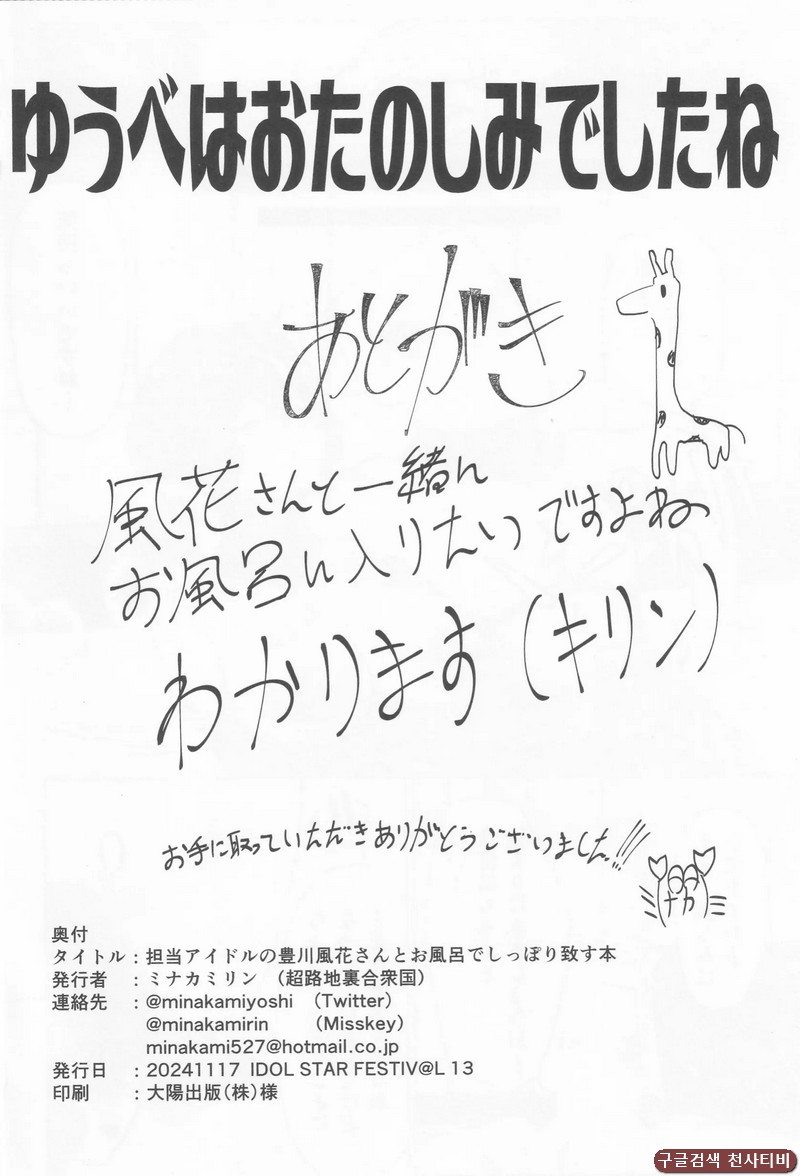 ゆうべはおたのしみでしたね
あとがき
風花さんと一緒に
お風呂に入りたいですよね
わかります(キリン)
お手に取っていただきありがとうございました!!!
ナカ
奥付
タイトル:担当アイドルの豊川風花さんとお風呂でしっぽり致す本
発行者 :ミナカミリン (超路地裏合衆国)
連絡先 :@minakamiyoshi (Twitter)
@minakamirin (Misskey)
minakami527@hotmail.co.jp
発行日 :20241117 IDOL STAR FESTIV@L 13
印刷 :大陽出版(株)様
구글검색 천사티비